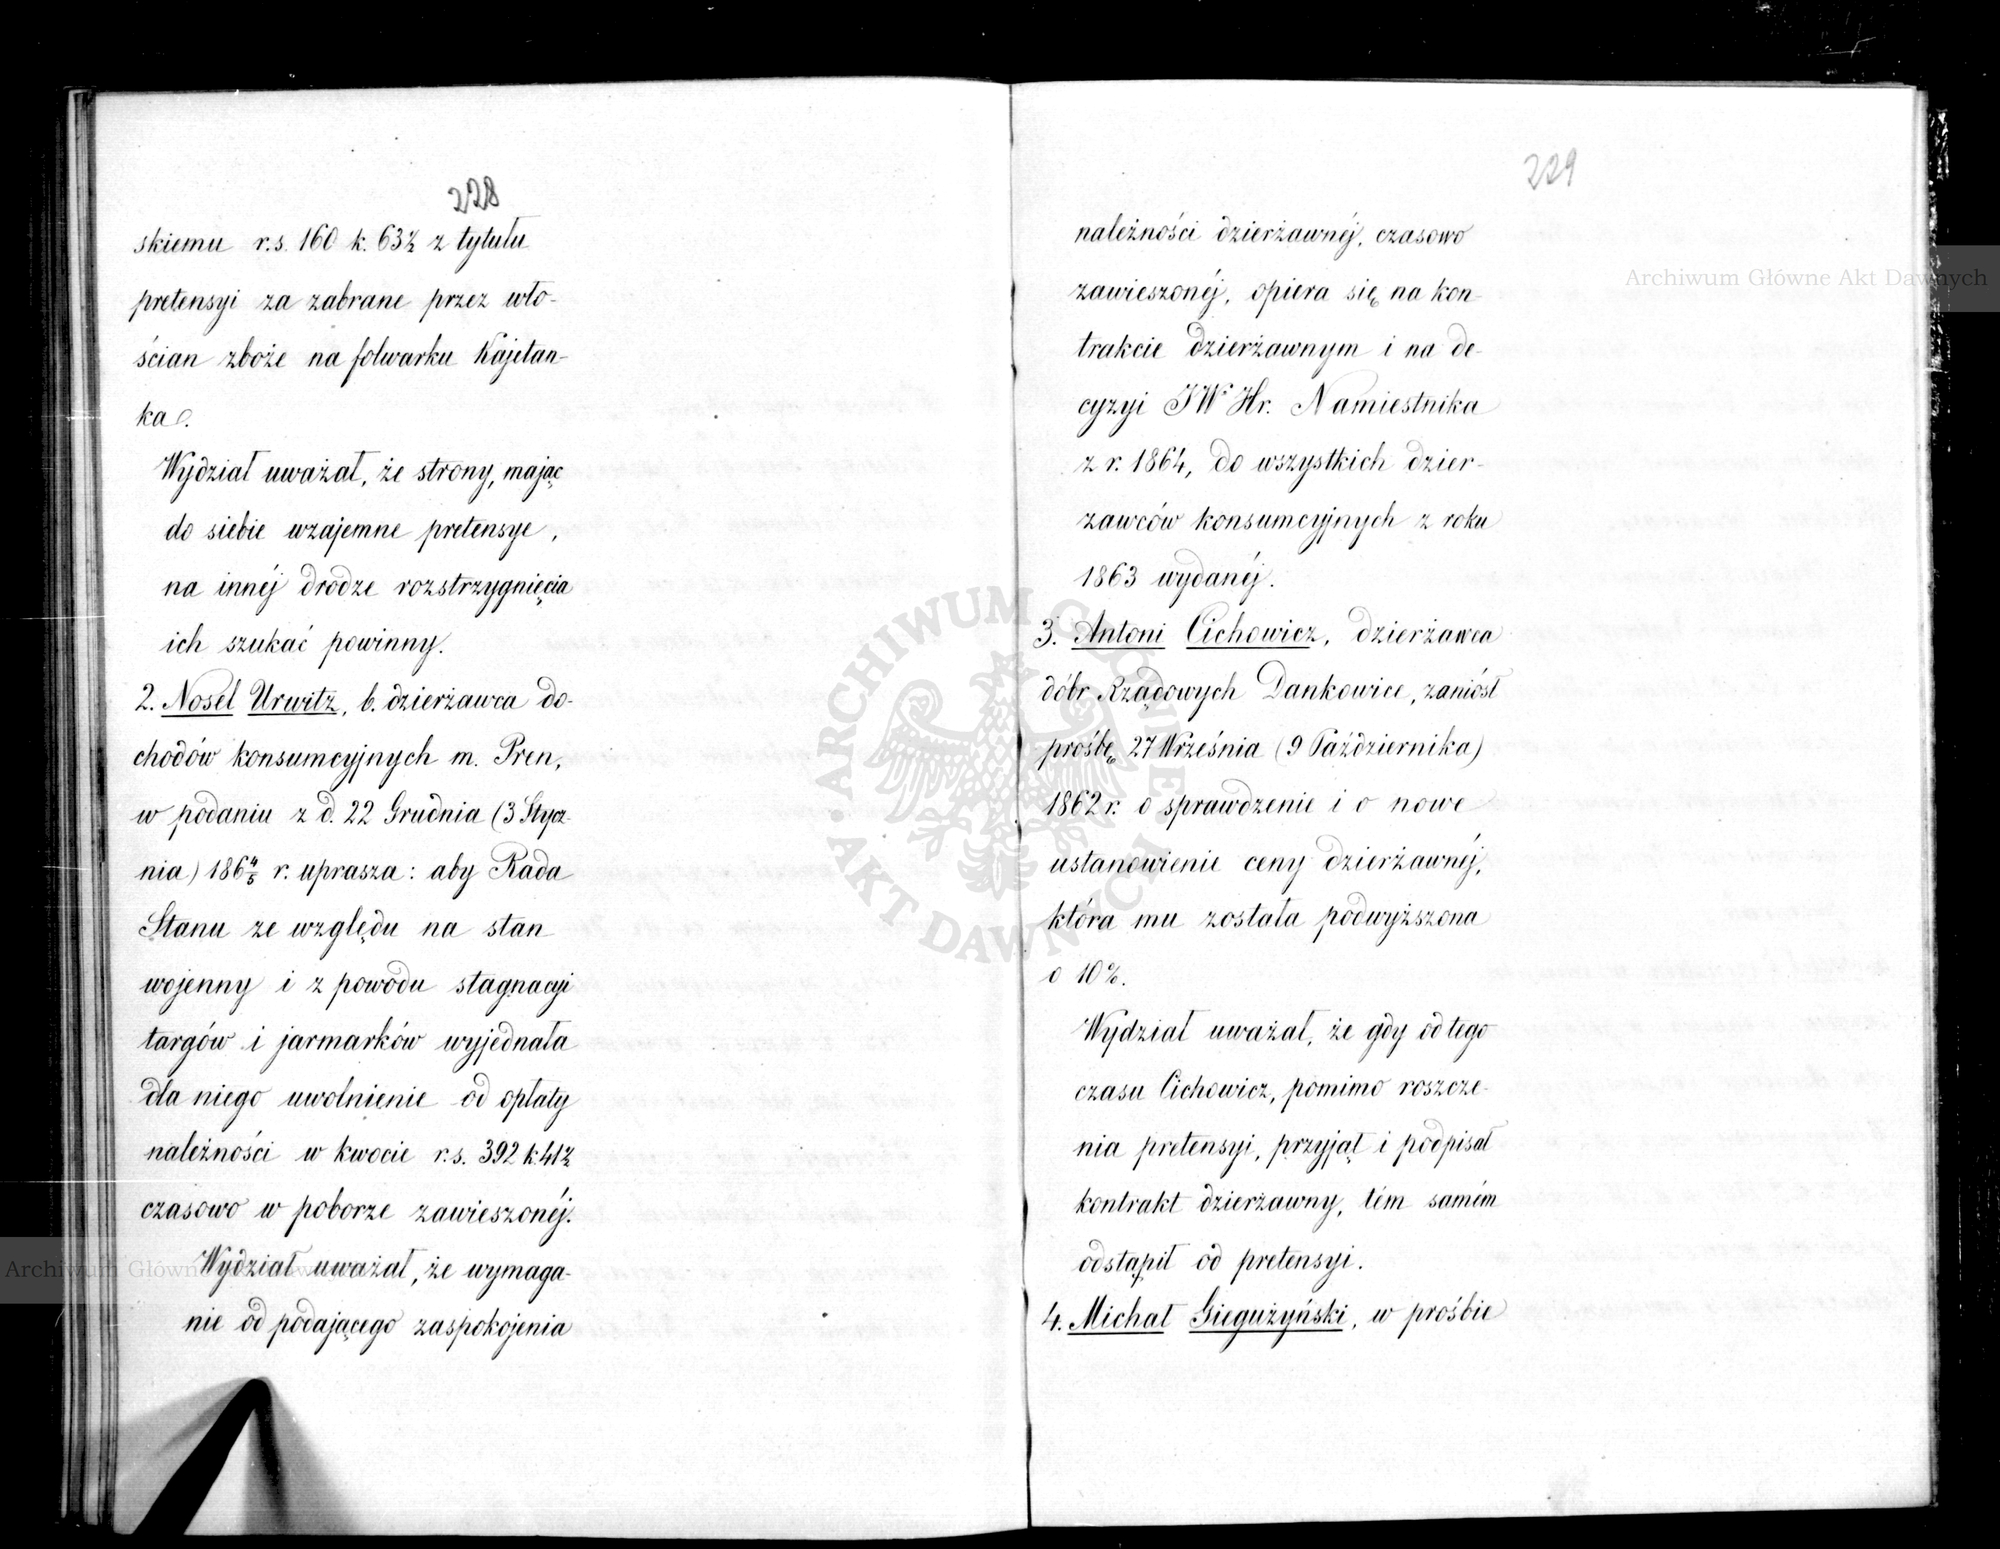 228
skiemu r.s. 160 k. 63½ z tytułu
pretensyi za zabrane przez wło-
ścian zboże na folwarku Kajetan-
ka.
Wydział uważał, że strony, mając
do siebie wzajemne pretensye,
na innéj drodze rozstrzygnięcia
ich szukać powinny.
2. Nosel Urwitz, b. dzierżawca do-
chodów konsumcyjnych m. Pren,
w podaniu z d. 22 Grudnia (3 Stycz-
nia) 186⁴/₅ r. uprasza: aby Rada
Stanu ze względu na stan
wojenny i z powodu stagnacyi
targów i jarmarków wyjednała
dla niego uwolnienie od opłaty
należności w kwocie r.s. 392 k. 41½
czasowo w poborze zawieszonéj.
Wydział uważał, że wymaga-
nie od podającego zaspokojenia
229
należności dzierżawnéj, czasowo
zawieszonéj, opiera się na kon-
trakcie dzierżawnym i na de-
cyzyi JW Hr. Namiestnika
z r. 1864, do wszystkich dzier-
zawców konsumcyjnych z roku
1863 wydanéj.
3. Antoni Cichowicz, dzierżawca
dóbr Rządowych Dankowice, zaniósł
prośbę 27 Września (9 Października)
1862 r. o sprawdzenie i o nowe
ustanowienie ceny dzierżawnéj,
która mu została podwyższona
o 10%.
Wydział uważał, że gdy od tego
czasu Cichowicz, pomimo roszcze-
nia pretensyi, przyjął i podpisał
kontrakt dzierżawny, tém samém
odstąpił od pretensyi.
4. Michał Giegużyński, w prośbie
Archiwum Główne Akt Dawnych
ARCHIWUM GŁÓWNE AKT DAWNYCH
Archiwum Główne Akt Dawnych